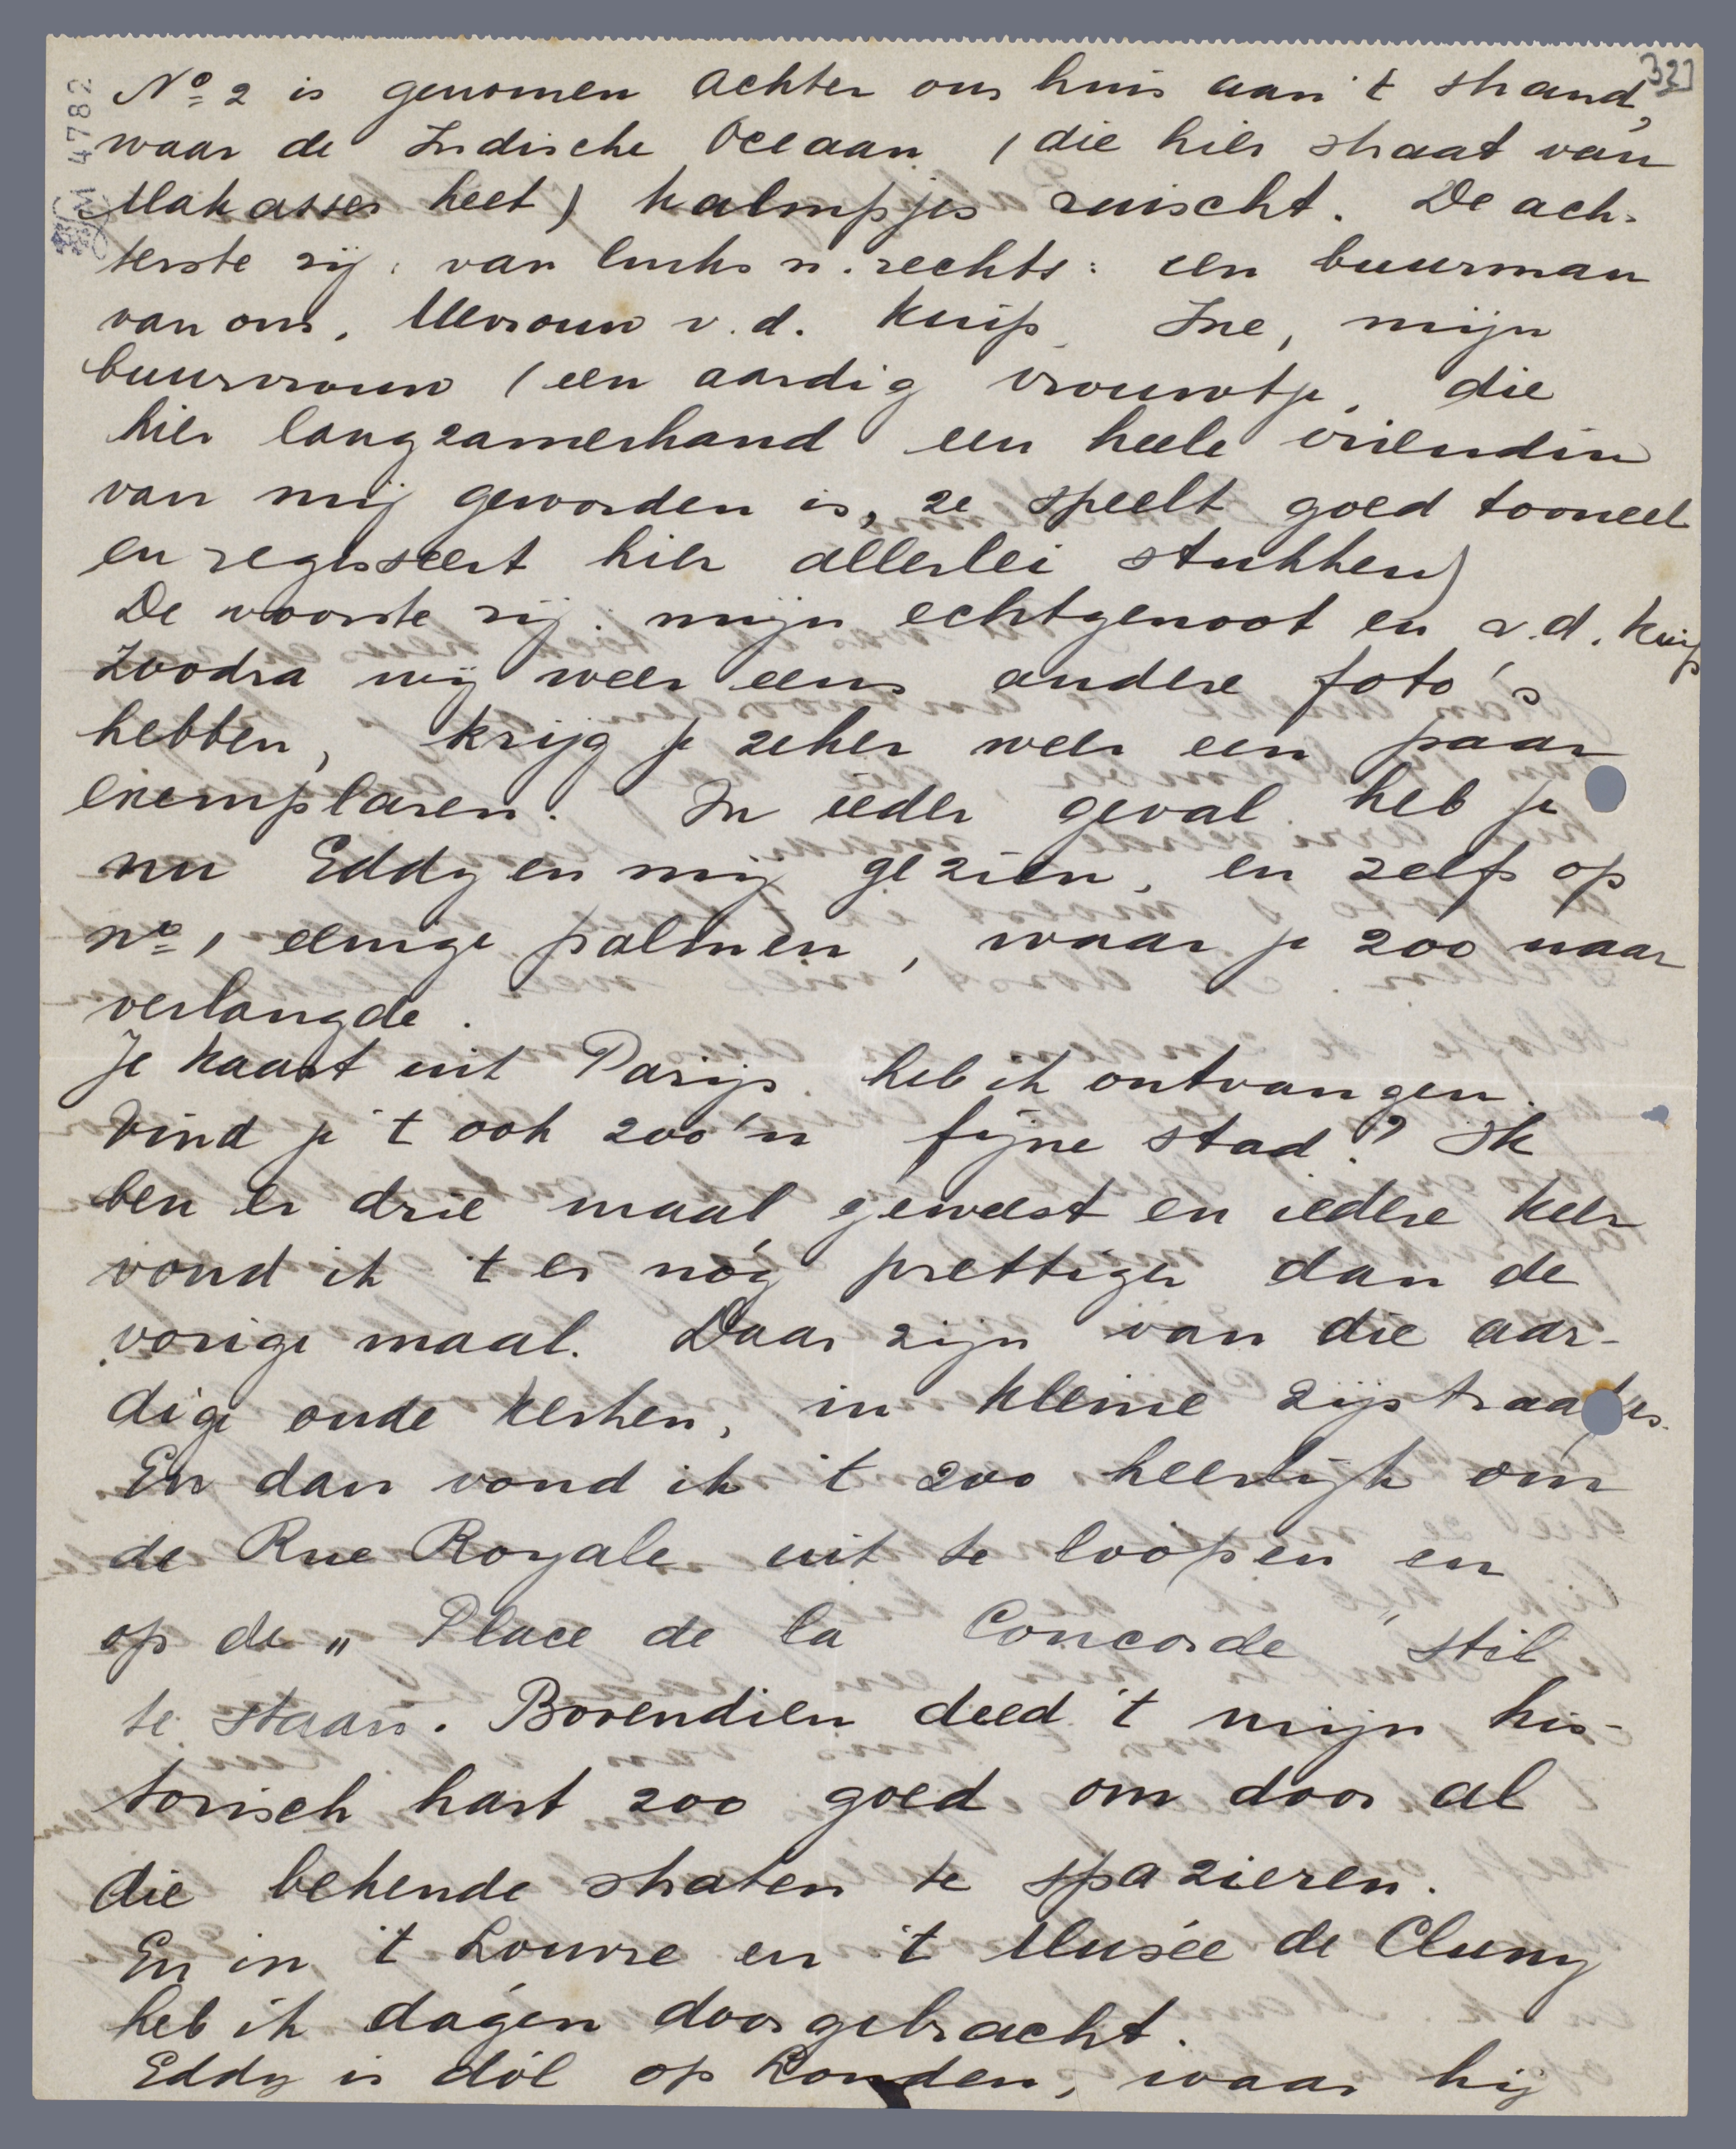 32]
DM 4782
Nº 2 is genomen achter ons huis aan 't strand,
waar de Indische Oceaan (die hier straat van
Makasser heet) kalmpjes ruischt. De ach-
terste rij: van links n. rechts: een buurman
van ons, Mevrouw v.d. Kuip, Ine, mijn
buurvrouw (een aardig vrouwtje, die
hier langzamerhand een heele vriendin
van mij geworden is, ze speelt goed tooneel
en regisseert hier allerlei stukken)
De voorste rij: mijn echtgenoot en v.d. Kuip
Zoodra wij weer eens andere foto's
hebben, krijg je zeker weer een paar
exemplaren. In ieder geval heb je
nu Eddy en mij gezien, en zelfs op
nº 1 eenige palmen, waar je zoo naar
verlangde.
Je kaart uit Parijs heb ik ontvangen.
Vind je 't ook zoo'n fijne stad? Ik
ben er drie maal geweest en iedere keer
vond ik 't er nóg prettiger dan de
vorige maal. Daar zijn van die aar-
dige oude kerken, in kleine zijstraatjes.
En dan vond ik 't zoo heerlijk om
de Rue Royale uit te loopen en
op de „Place de la Concorde" stil
te staan. Bovendien deed 't mijn his-
torisch hart zoo goed om door al
die bekende straten te spazieren.
En in 't Louvre en 't Musée de Cluny
heb ik dagen doorgebracht.
Eddy is dól op Londen, waar hij